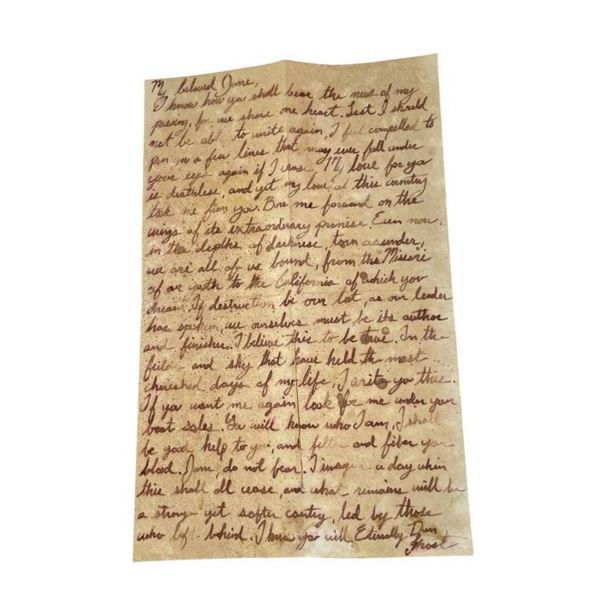 My beloved Jane,
I know how you shall bear the news of my
passing, for we share one heart. Lest I should
not be able to write again, I feel compelled to
pen you a few lines that may ever fall under
your eye again if I cease. My love for ya
is deathless, and yet my love of this country
took me from you. Bore me forward on the
wings of its extraordinary promise. Even now,
in the depths of darkness, torn asunder,
we are all of us bound, from the Missouri
of our youth to the California of which you
dream. If destruction be our lot, as our leader
has spoken, we ourselves must be its author
and finisher. I believe this to be true. In the
and sky that have held the most
cherished days of my life, I write you this.
If ya want me again look for me under your
boot soles. You will know who I am, I shall
be good help to you, and filter and fiber your
blood. Jane do not fear. I imagine a day when
this shall all cease, and what remains will be
a stronger yet softer country, led by those
who left behind. I know you will Eternally Dan
Frost